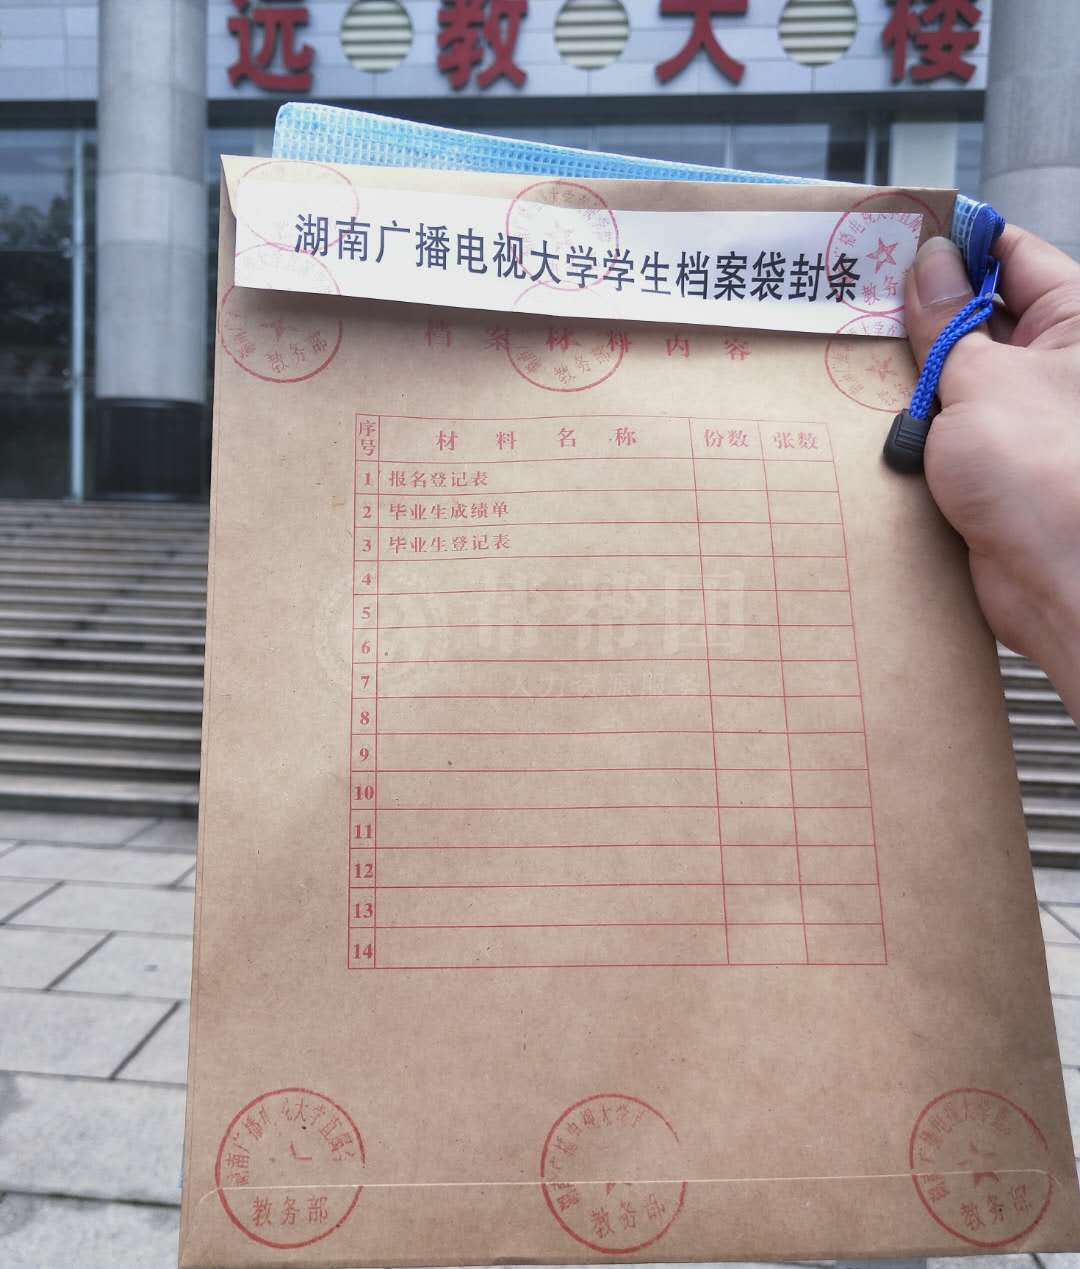 远教大楼
湖南广播电视大学学生档案袋封条
教务部
教务部
教务
档案材料内容
序号 材料名称 份数 张数
1 报名登记表
2 毕业生成绩单
3 毕业生登记表
4
5
6
7
8
9
10
11
12
13
14
帮帮团
人力资源服务
湖南广播电视大学直属
教务部
湖南广播电视大学
教务部
湖南广播电视大学
教务部